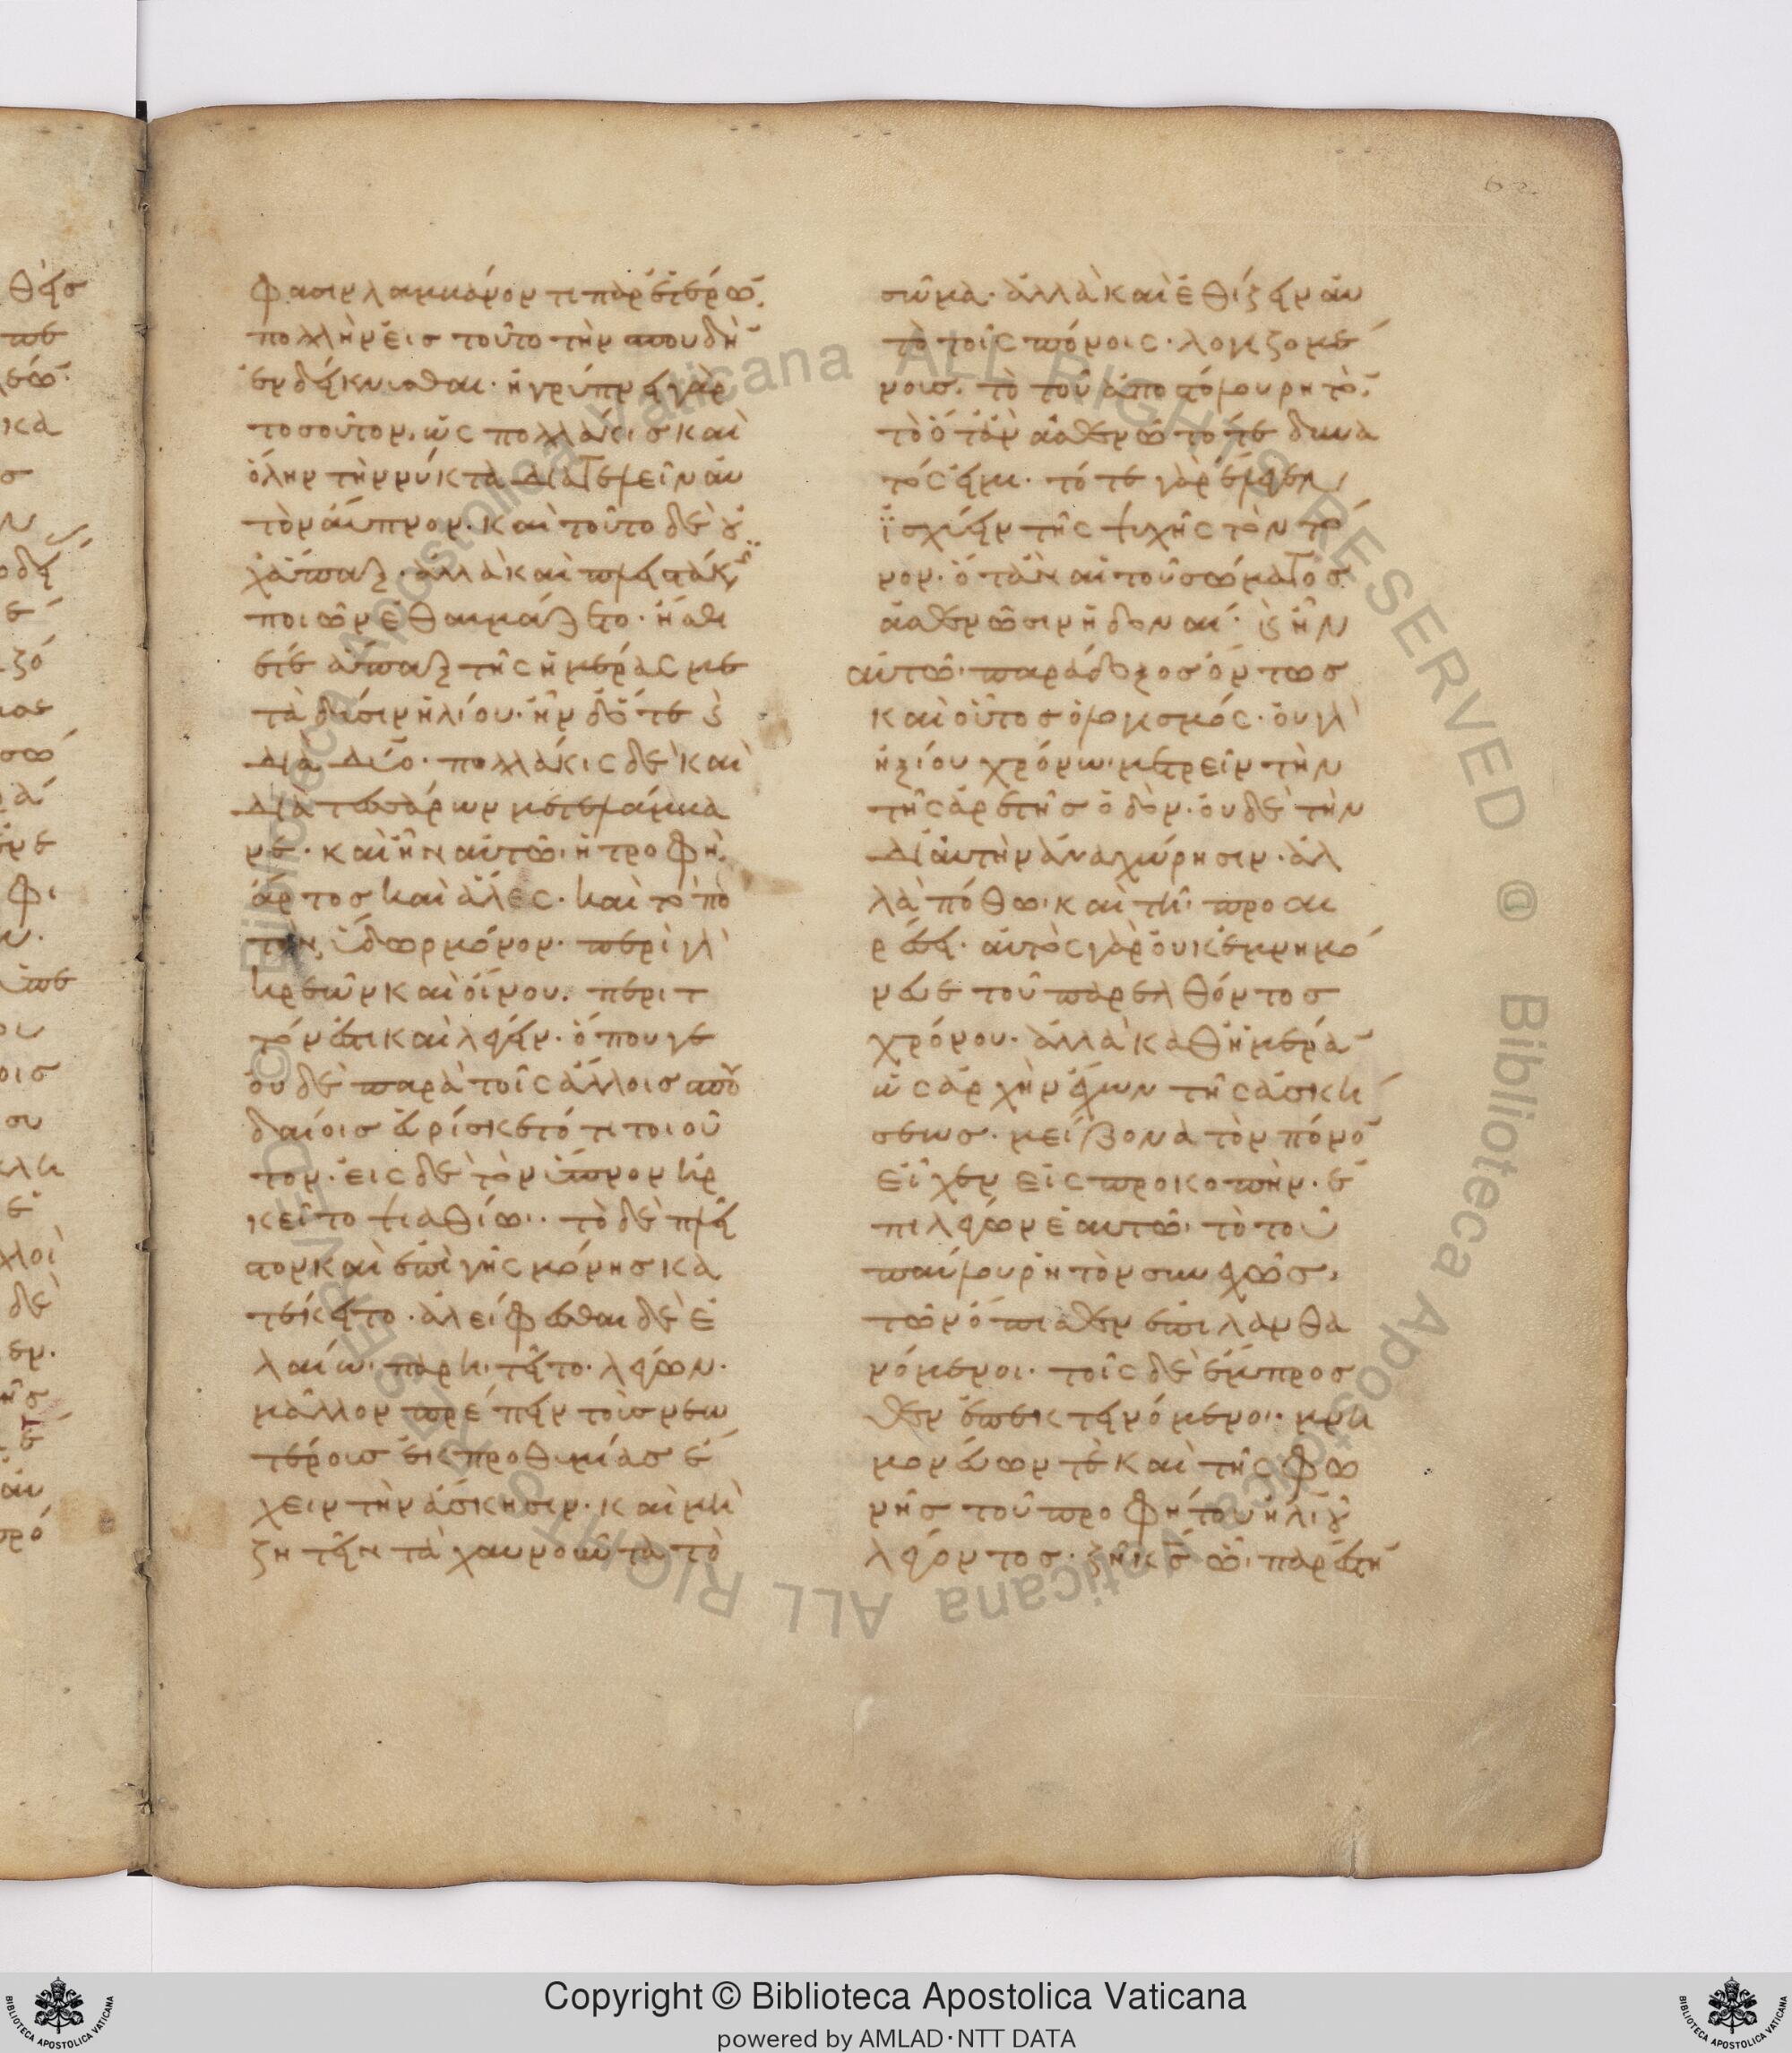 62
φασιν λαμβάνον τι παρ ἑτέρω̅
πολλὴν εἰς τοῦτο τὴν σπουδὴ̅
ἐνδείκνυσθαι· ἠγρύπνει γὰρ
τοσοῦτον, ὡς πολλάκις καὶ
ὅλην τὴν νύκτα διατελεῖν αὐ
τὸν ἄυπνον. καὶ τοῦτο δὲ οὐ
χ ἅπαξ· ἀλλὰ καὶ πλειστάκις
ποιῶν ἐθαυμάζετο· ἤσθι
ετέ ἅπαξ τῆς ἡμέρας με
τὰ δύσιν ἡλίου· ἦν δ' ὅτε ϗ
διὰ δύο· πολλάκις δὲ καὶ
διὰ τεσσάρων μετελάμβα
νε· καὶ ἦν αὐτῶ ἡ τροφὴ
ἄρτος καὶ ἅλες· καὶ τὸ πο
τὸν, ὕδωρ μόνον· περὶ γὰρ
κρεῶν καὶ οἴνου. περιτ
τόν ἐστι καὶ λέγειν· ὅπου γε
οὐδὲ παρὰ τοῖς ἄλλοις σπου
δαίοις εὑρίσκετό τι τοιοῦ
τον· εἰς δὲ τὸν ὕπνον ἠρ
κεῖτο ψιαθίω· τὸ δὲ πλεῖ
στον καὶ ἐπὶ γῆς μόνης κα
τέκειτο· ἀλείφεσθαι δὲ ἐ
λαίω παρῃτεῖτο· λέγων·
μᾶλλον πρέπειν τοὺς νεω
τέρους ἐκ προθυμίας ἔ
χειν τὴν ἄσκησιν· καὶ μὴ
ζητεῖν τὰ χαυνοῦντα τὸ
σῶμα· ἀλλὰ καὶ ἐθίζειν αὐ
τὸ τοῖς πόνοις· λογιζομέ
νους. τὸ τοῦ ἀποστόλου ῥητὸ̅
τὸ ὅταν ἀσθενῶ τότε δυνα
τός εἰμι· τότε γὰρ ἔλεγεν
ἰσχύειν τῆς ψυχῆς τὸν τό
νον· ὅταν αἱ τοῦ σώματος
ἀσθενῶσιν ἡδοναί· ϗ ἦν
αὐτῶ παράδοξος ὄντως
καὶ οὗτος ὁ λογισμός· οὐ γὰρ
ἠξίου χρόνω μετρεῖν τὴν
τῆς ἀρετῆς ὁδὸν· οὐδὲ τὴν
δι' αὐτὴν ἀναχώρησιν· ἀλ
λὰ πόθω καὶ τῇ προαι
ρέσει· αὐτὸς γὰρ οὐκ ἐμνημό
νευε τοῦ παρελθόντος
χρόνου· ἀλλὰ καθ' ἡμέρα̅
ὡς ἀρχὴν ἔχων τῆς ἀσκή
σεως· μείζονα τὸν πόνο̅
εἶχεν εἰς προκοπὴν· ἐ
πιλέγων ἑαυτῶ τὸ τοῦ
παύλου ῥητὸν συνεχῶς,
τῶν ὄπισθεν ἐπιλανθα
νόμενοι· τοῖς δὲ ἔμπροσ
θεν ἐπεκτεινόμενοι· μνη
μονεύων τὲ καὶ τῆς φω
νῆς τοῦ προφήτου ἠλίου
λέγοντος· ζῆ κς̅ ὧ παρέστη̅